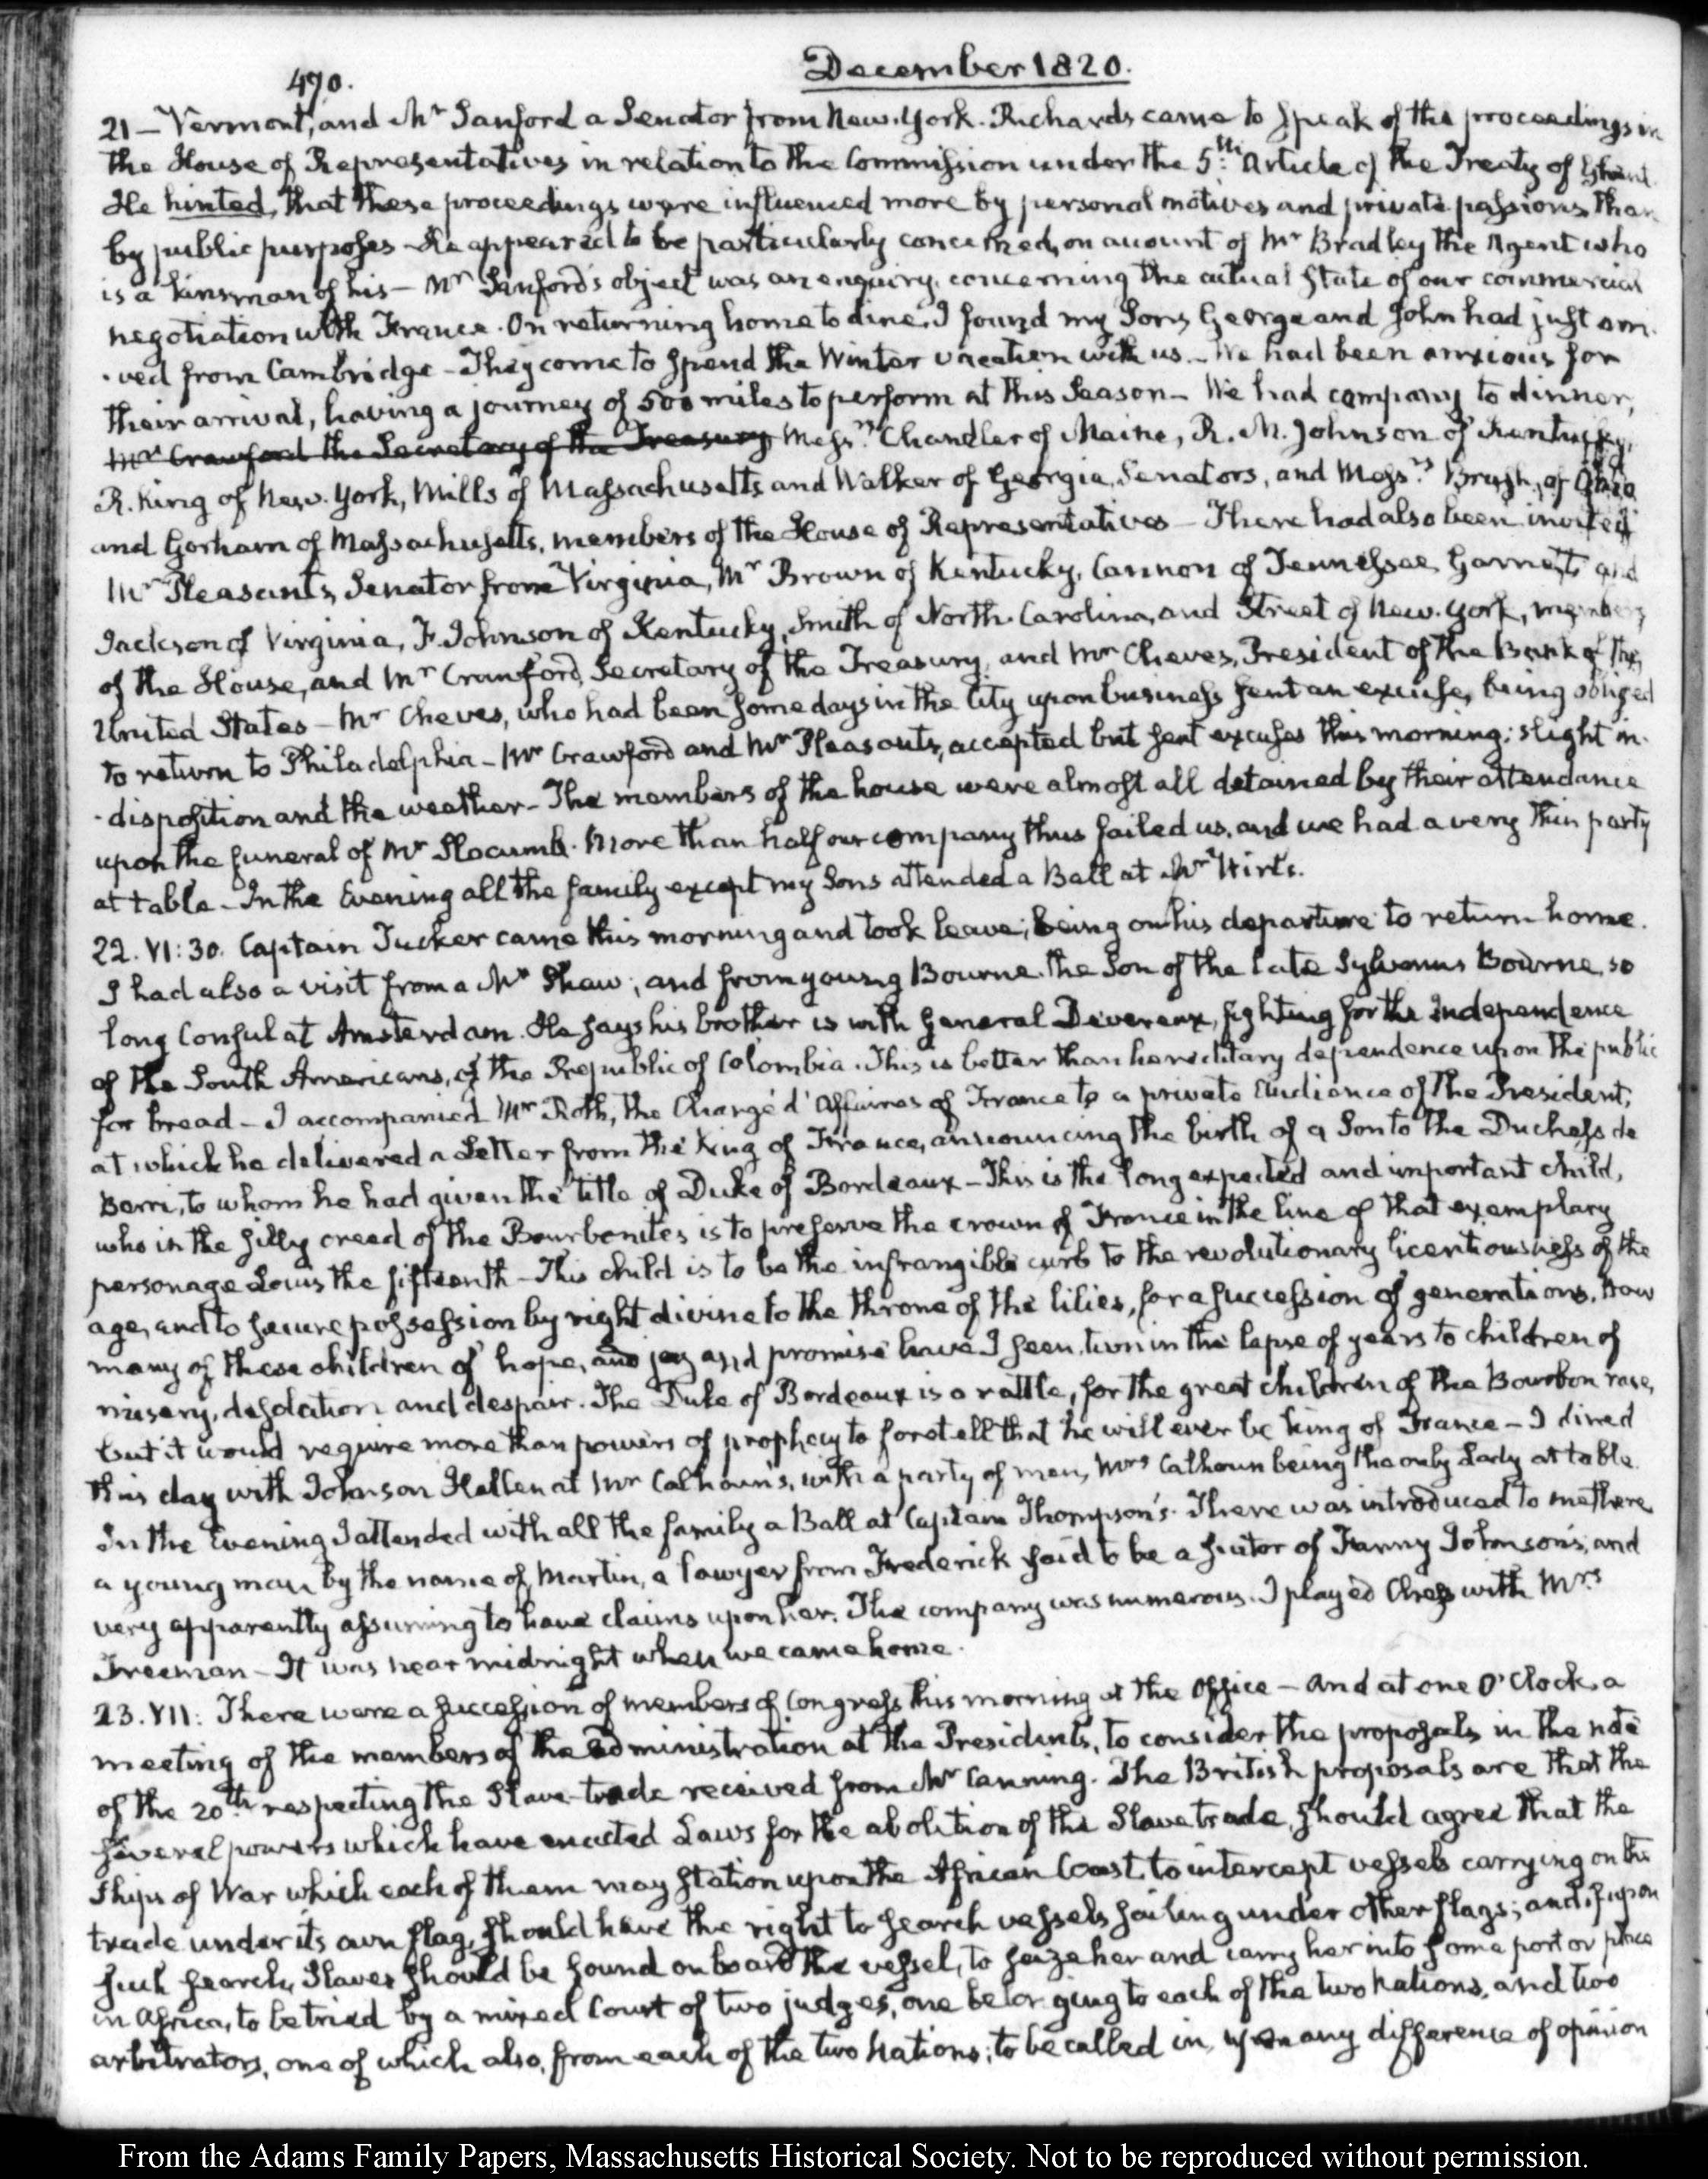 490.
December 1820.
21 — Vermont, and Mr Sanford a Senator from New-York. Richards came to speak of the proceedings in
the House of Representatives in relation to the Commission under the 5th: Article of the Treaty of Ghent.
He hinted, that these proceedings were influenced more by personal motives and private passions, than
by public purposes — He appeared to be particularly concerned, on account of Mr Bradley the Agent who
is a kinsman of his — Mr Sanford's object was an enquiry, concerning the actual state of our commercial
negotiation with France. On returning home to dine, I found my Sons George and John had just arri-
-ved from Cambridge — They come to spend the Winter vacation with us. — We had been anxious for
their arrival, having a journey of 500 miles to perform at this Season — We had company to dinner,
Mr Crawford the Secretary of the Treasury Messrs: Chandler of Maine, R. M. Johnson of Kentucky,
R. King of New-York, Mills of Massachusetts and Walker of Georgia, Senators, and Messrs: Brush, of Ohio
and Gorham of Massachusetts, members of the House of Representatives — There had also been invited
Mr Pleasants, Senator from Virginia, Mr Brown of Kentucky, Cannon of Tennessee, Garnett and
Jackson of Virginia, F. Johnson of Kentucky, Smith of North-Carolina, and Street of New-York, members
of the House, and Mr Crawford, Secretary of the Treasury, and Mr Cheves, President of the Bank of the
United States — Mr Cheves, who had been some days in the City upon business sent an excuse, being obliged
to return to Philadelphia — Mr Crawford and Mr Pleasants, accepted but sent excuses this morning; slight in-
-disposition and the weather — The members of the house were almost all detained by their attendance
upon the funeral of Mr Slocumb. More than half our company thus failed us, and we had a very thin party
at table — In the Evening all the family except my Sons attended a Ball at Mr Wirt's.
22. VI: 30. Captain Tucker came this morning and took leave; being on his departure to return home.
I had also a visit from a Mr Shaw; and from young Bourne, the Son of the late Sylvanus Bourne, so
long Consul at Amsterdam. He says his brother is with General Devereux, fighting for the Independence
of the South Americans, of the Republic of Colombia. This is better than hereditary dependence upon the public
for bread — I accompanied Mr Roth, the Chargé d'Affaires of France to a private Audience of the President,
at which he delivered a Letter from the King of France, announcing the birth of a Son to the Duchess de
Berri, to whom he had given the title of Duke of Bordeaux — This is the long expected and important child,
who in the silly creed of the Bourbonites is to preserve the crown of France in the line of that exemplary
personage Louis the fifteenth — This child is to be the infrangible curb to the revolutionary licentiousness of the
age, and to secure possession by right divine to the throne of the lilies, for a succession of generations. How
many of these children of hope, and joy and promise have I seen, turn in the lapse of years to children of
misery, desolation and despair. The Duke of Bordeaux is a rattle, for the great children of the Bourbon race,
but it would require more than powers of prophecy to foretell that he will ever be king of France — I dined
this day with Johnson Hellen at Mr Calhoun's, with a party of men, Mrs Calhoun being the only Lady at table.
In the Evening I attended with all the family a Ball at Captain Thompson's. There was introduced to me there
a young man by the name of Martin, a lawyer from Frederick said to be a suitor of Fanny Johnson's; and
very apparently assuming to have claims upon her. The company was numerous. I played Chess with Mrs:
Freeman — It was near midnight when we came home.
23. VII: There were a succession of members of Congress this morning at the Office — And at one O'Clock, a
meeting of the members of the administration at the President's, to consider the proposals in the note
of the 20th respecting the Slave-trade received from Mr Canning. The British proposals are that the
several powers which have enacted Laws for the abolition of the Slave trade, should agree that the
ships of War which each of them may station upon the African Coast, to intercept vessels carrying on the
trade under its own flag, should have the right to search vessels sailing under other flags; and if upon
such search, Slaves should be found on board the vessel, to seize her and carry her into some port or place
in Africa, to be tried by a mixed Court of two judges, one belonging to each of the two Nations, and two
arbitrators, one of which also, from each of the two Nations; to be called in, upon any difference of opinion
From the Adams Family Papers, Massachusetts Historical Society. Not to be reproduced without permission.